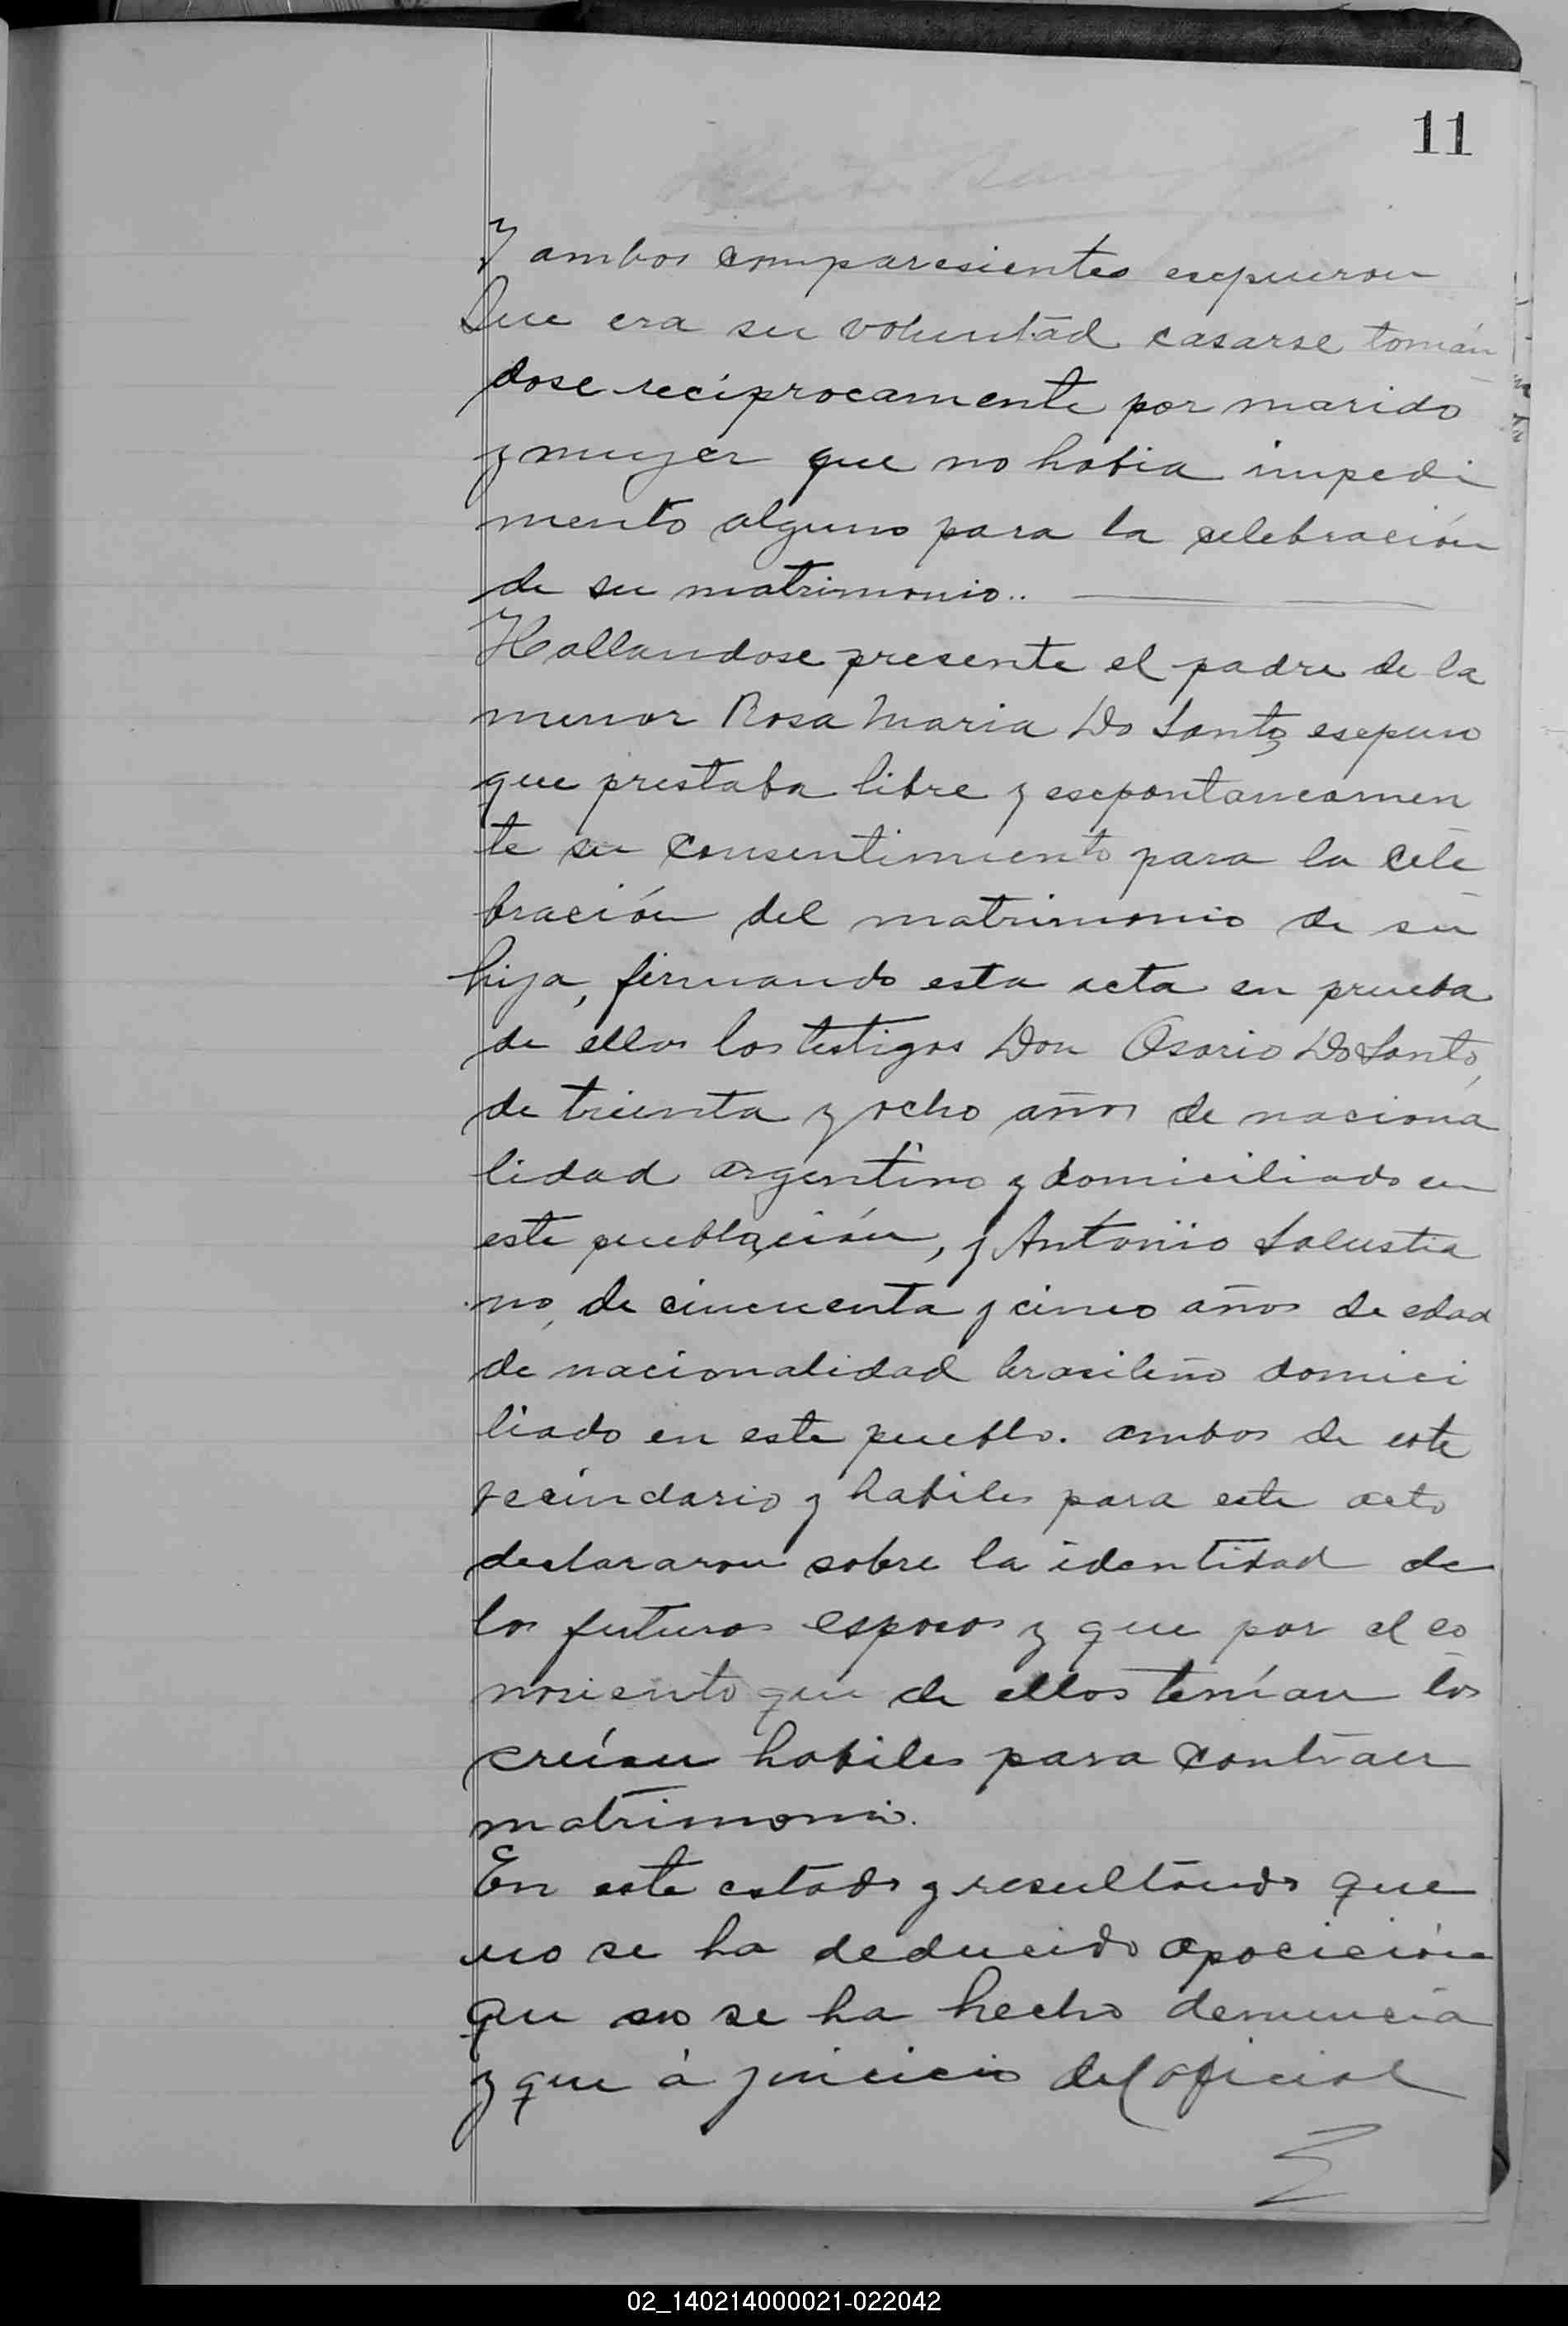 11
Y ambos comparesientes esepueron
Que era su voluntad casarse tomán
dose recíprocamente por marido
y mujer que no habia impedi
mento alguno para la celebración
de su matrimonio..
Hallandose presente el padre de la
menor Rosa Maria Do Santo, esepuso
que prestaba libre y esepontaneamen
te su consentimiento para la cele
bración del matrimonio de su
hija, firmando esta acta en prueba
de ellos los testigos Don Osorio Do Santo,
de trienta y ocho años de naciona
lidad argentino y domiciliado en
este pueblación, y Antonio Salustia
no, de cincuenta y cinco años de edad
de nacionalidad brasileño domici
liado en este pueblo. ambos de este
vecindario y habiles para este acto
declararon sobre la identidad de
los futuros esposos y que por el co
nosiento que de ellos tenían los
creían habiles para contraer
matrimonio.
En este estado y resultando que
no se ha deducido oposición
que no se ha hecho denuncia
y que á juicicio del oficial
02_140214000021-022042